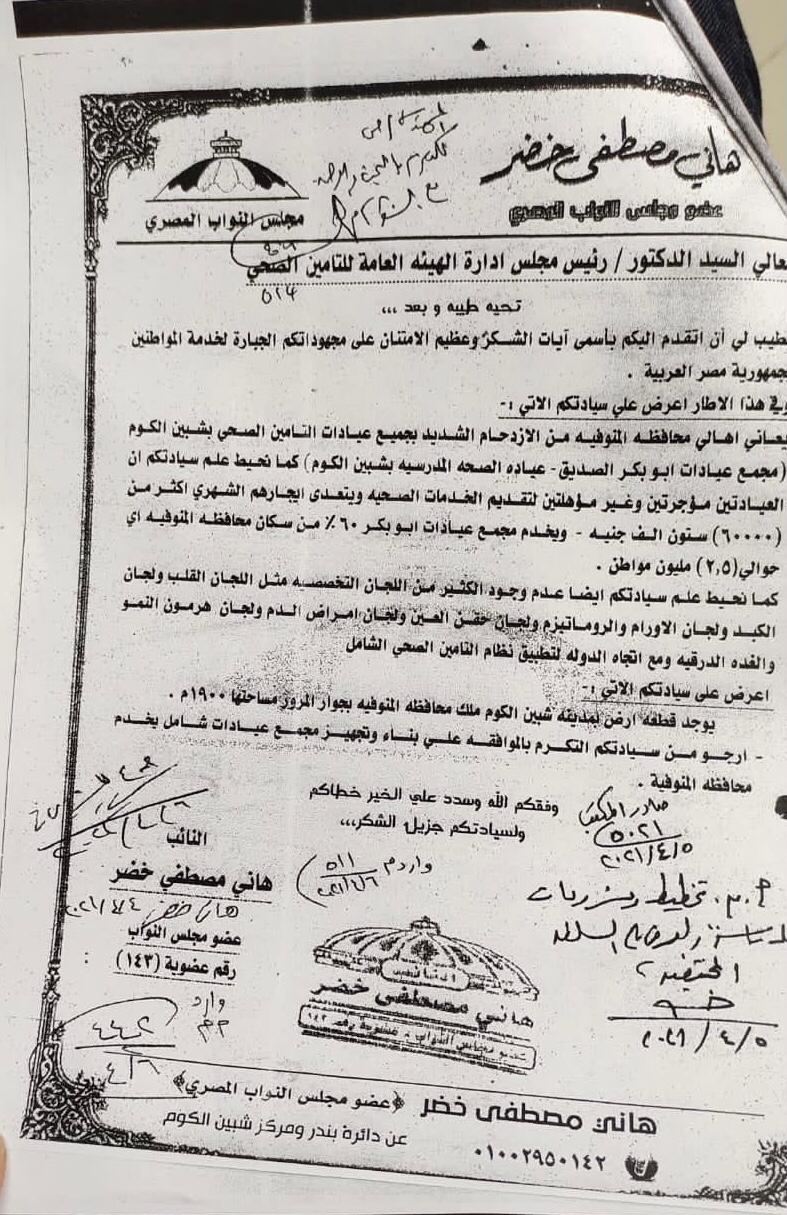 هاني مصطفى خضر
عضو مجلس النواب المصري
مجلس النواب المصري
عالي السيد الدكتور / رئيس مجلس ادارة الهيئه العامة للتامين الصحي
٥٢٤
تحيه طيبه و بعد ،،،
طيب لي أن اتقدم اليكم بأسمى آيات الشكر وعظيم الامتنان على مجهوداتكم الجبارة لخدمة المواطنين
جمهورية مصر العربية .
وفي هذا الاطار اعرض علي سيادتكم الاتي :-
يعاني اهالي محافظه المنوفيه من الازدحام الشديد بجميع عيادات التامين الصحي بشبين الكوم
(مجمع عيادات ابو بكر الصديق - عياده الصحه المدرسيه بشبين الكوم) كما نحيط علم سيادتكم ان
العيادتين مؤجرتين وغير مؤهلتين لتقديم الخدمات الصحيه ويتعدى ايجارهم الشهري اكثر من
(٦٠٠٠٠) ستون الف جنيه - ويخدم مجمع عيادات ابو بكر ٦٠٪ من سكان محافظه المنوفيه اي
حوالي (٢,٥) مليون مواطن .
كما نحيط علم سيادتكم ايضا عدم وجود الكثير من اللجان التخصصيه مثل اللجان القلب ولجان
الكبد ولجان الاورام والروماتيزم ولجان حقن العين ولجان امراض الدم ولجان هرمون النمو
والغده الدرقيه ومع اتجاه الدوله لتطبيق نظام التامين الصحي الشامل
اعرض على سيادتكم الاتي :-
يوجد قطعه ارض بمدينه شبين الكوم ملك محافظه المنوفيه بجوار المرور مساحتها ١٩٠٠م .
- ارجو من سيادتكم التكرم بالموافقه علي بناء وتجهيز مجمع عيادات شامل يخدم
محافظه المنوفية .
وفقكم الله وسدد علي الخير خطاكم
ولسيادتكم جزيل الشكر،،،
صادر المكتب
٥٠٢١
٢٠٢١/٤/٥
النائب
هاني مصطفي خضر
هاني خضر ٢٠٢١/٤/٤
عضو مجلس النواب
رقم عضوية (١٤٣)
وارد
٥١١
٢٠٢١/٤/٦
٢٠٢١/٤/٥
وارد
٤٤٣٢
٤/٦
النائب
هاني مصطفى خضر
عضو مجلس النواب - عضوية رقم ١٤٣
هاني مصطفى خضر ﴿عضو مجلس النواب المصري﴾
عن دائرة بندر ومركز شبين الكوم
٠١٠٠٢٩٥٠١٤٢